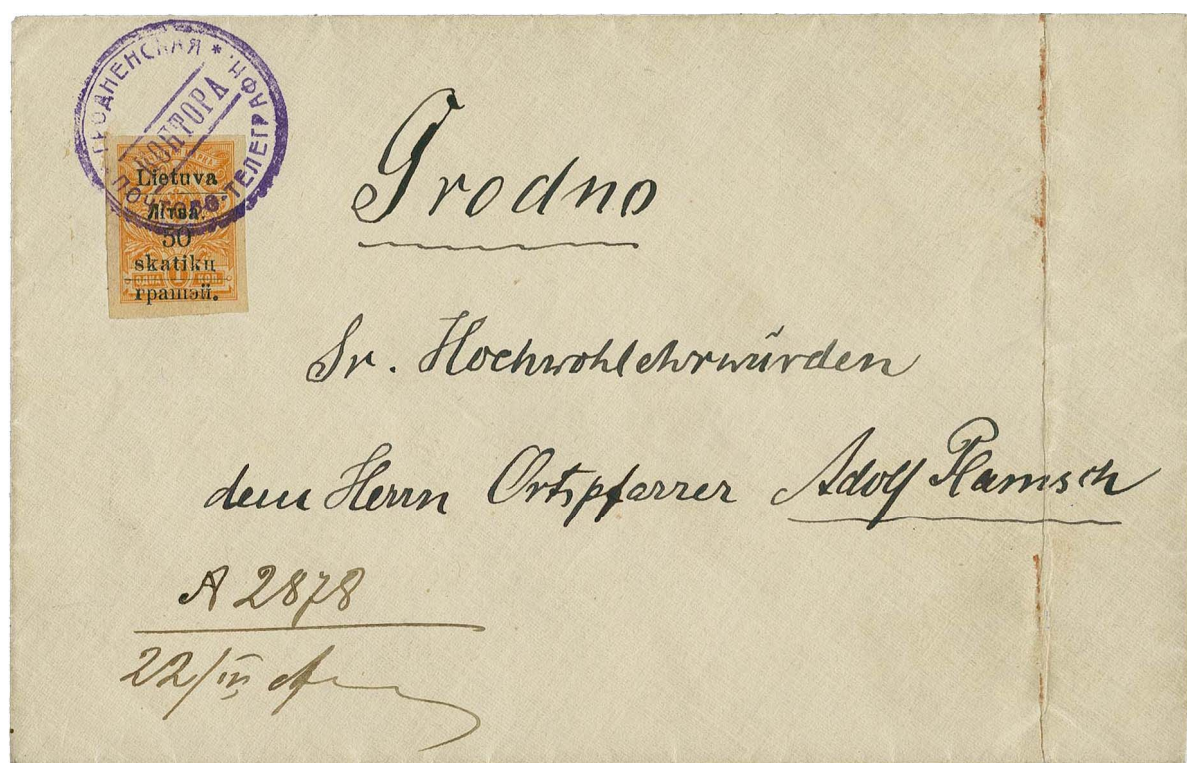 ГРОДНЕНСКАЯ * ПОЧТОВО-ТЕЛЕГРАФН.
КОНТОРА
Lietuva
Літва.
50
skatikų
ОДНА 1 КОП.
грашэй.
Grodno
Sr. Hochwohlehrwürden
dem Herrn Ortspfarrer Adolf Plamsch
A 2878
22/IV